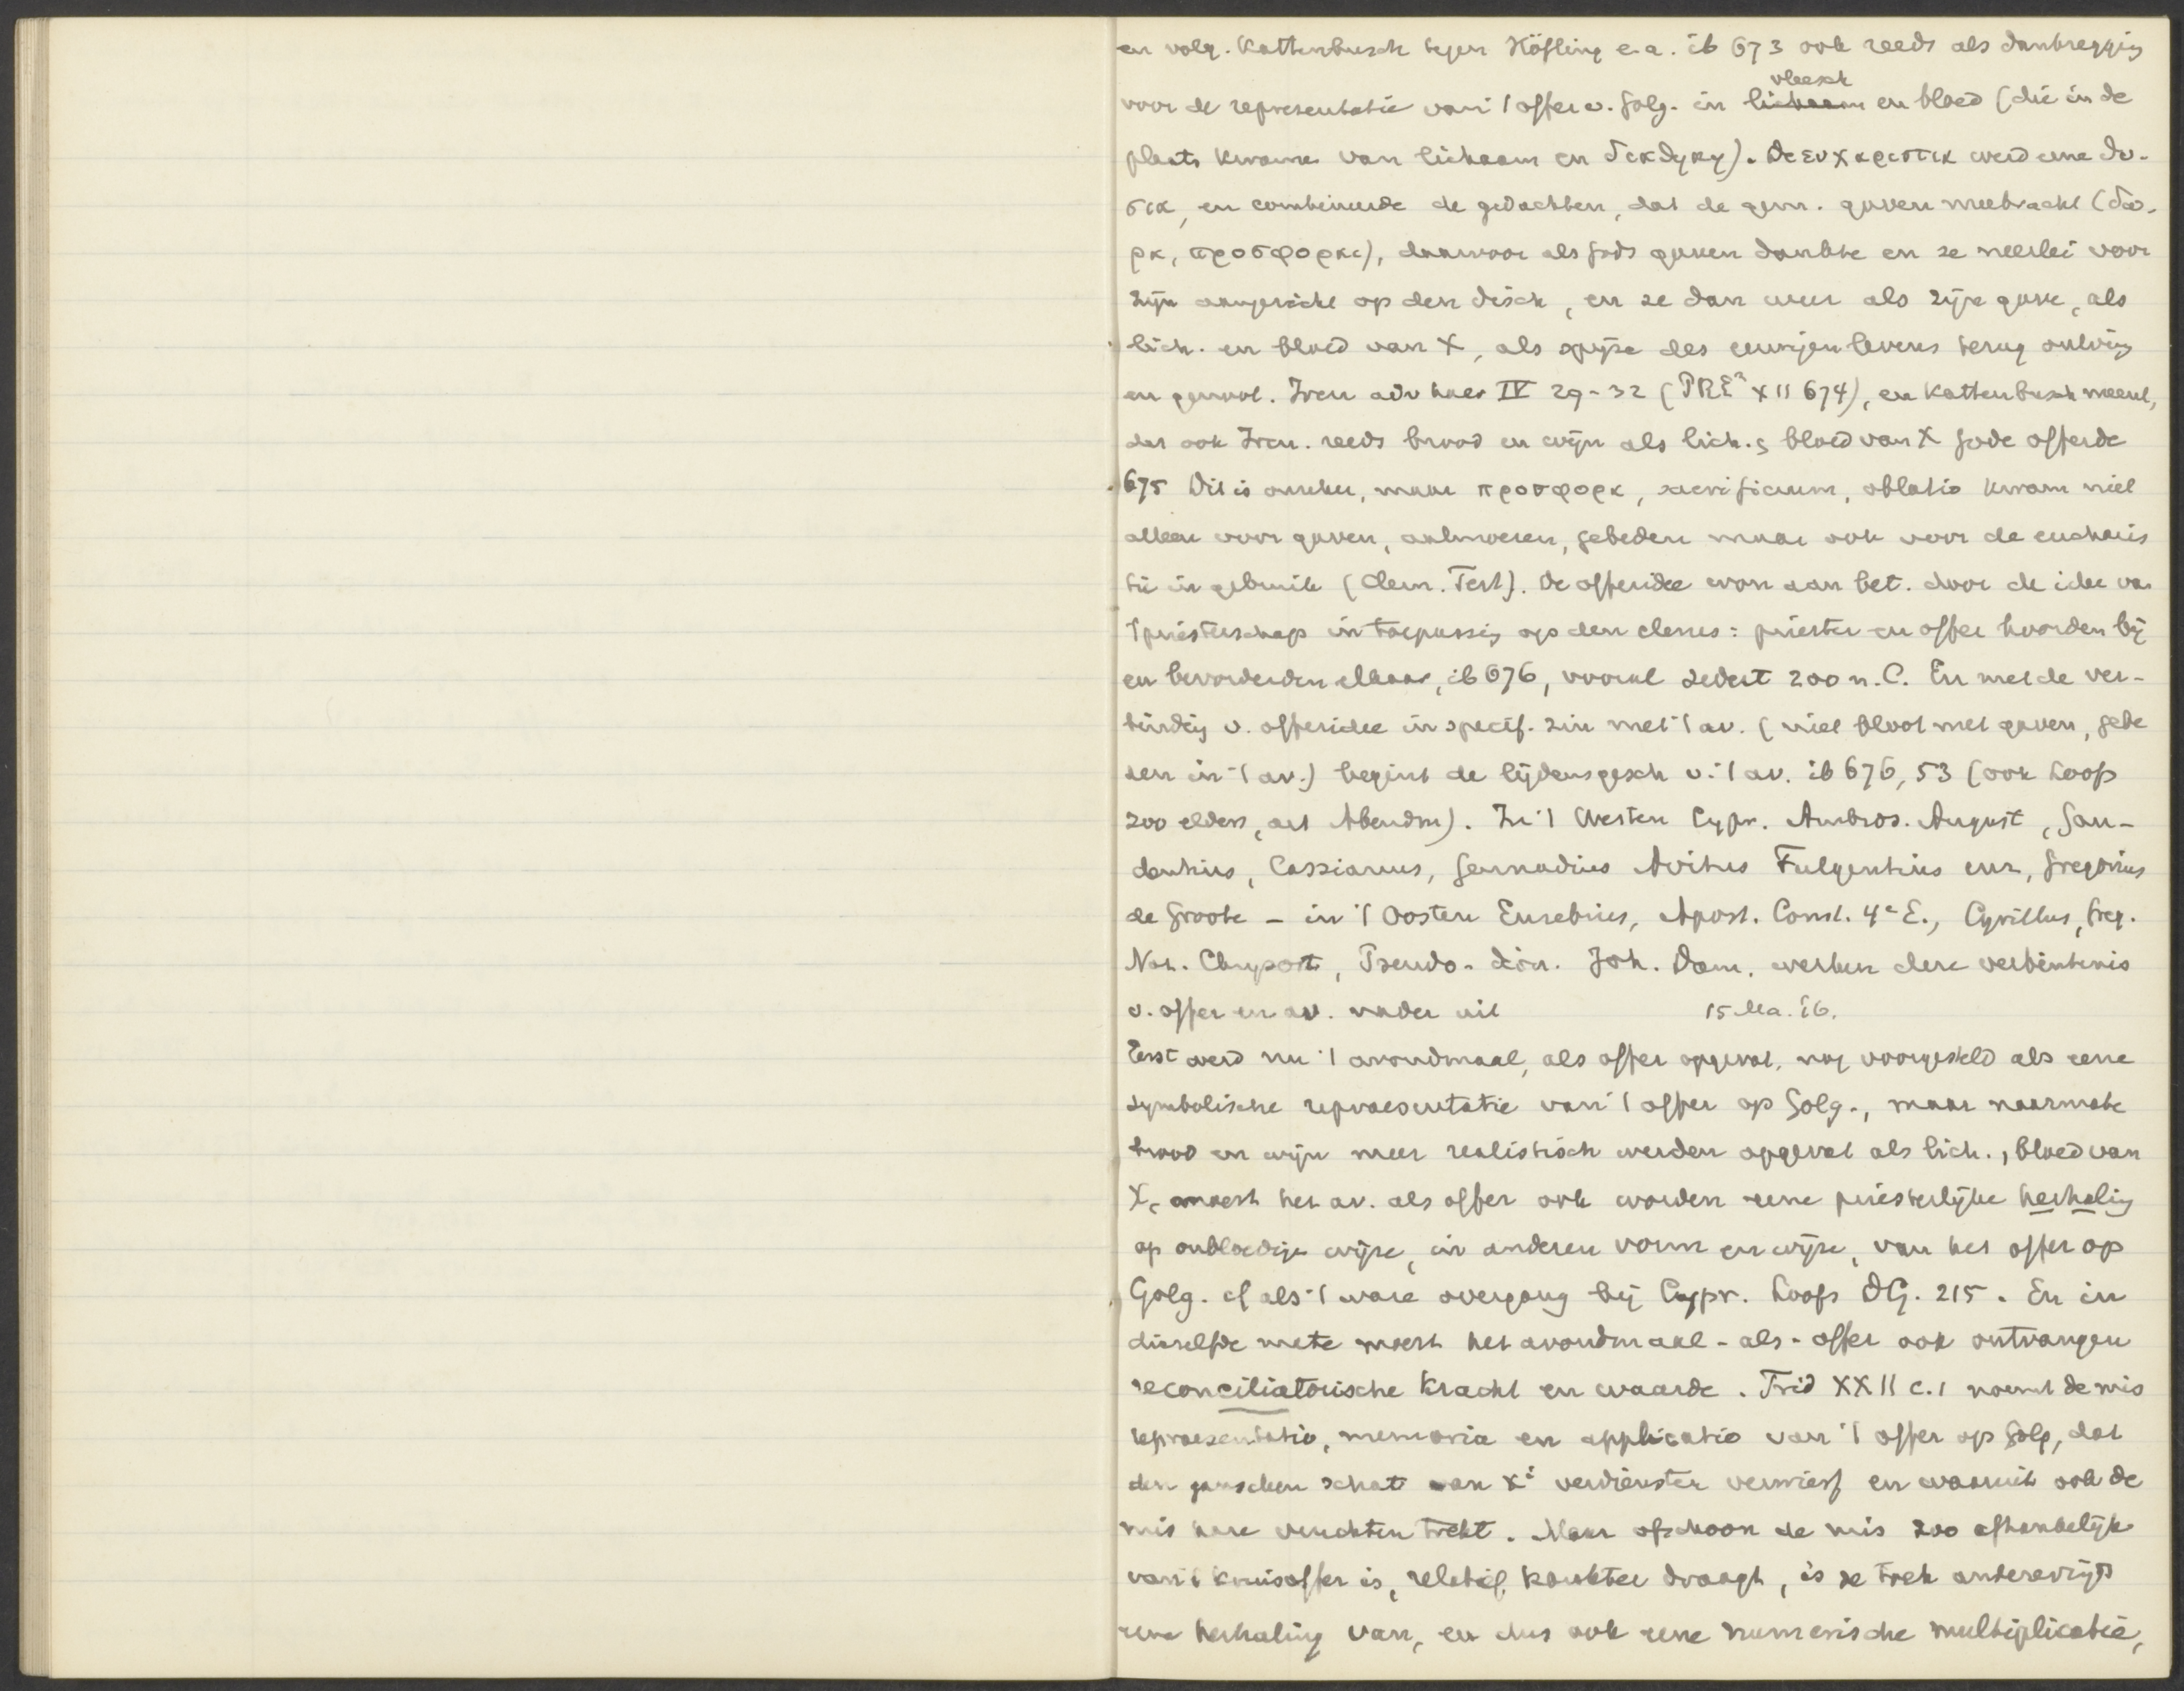 en volg. Kattenbusch tegen Höfling e.a. ib 673 ook reeds als dankzegging
voor de representatie van 't offer v. Golg. in lichaam vleesch en bloed (die in de
plaats kwamen van lichaam en διαθηκη). De ευχαριστια werd eene θυ-
σια, en combineerde de gedachten, dat de gem. gaven meebracht (δω-
ρα, προσφοραι), daarvoor als Gods gaven dankte en ze neerlei voor
zijn aangezicht op den disch, en ze dan weer als zijne gave, als
lich. en bloed van X, als spijze des eeuwigen levens terug ontving
en genoot. Iren adv haer IV 29-32 (PRE³ XII 674), en Kattenbusch meent,
dat ook Iren. reeds brood en wijn als lich. & bloed van X Gode offerde
675 Dit is onzeker, maar προσφορα, sacrificium, oblatio kwam niet
alleen voor gaven, aalmoezen, gebeden maar ook voor de eucharis
tie in gebruik (Clem. Tert). De offeridee won aan bet. door de idee van
't priesterschap in toepassing op den clerus: priester en offer hoorden bij
en bevorderden elkaar, ib 676, vooral sedert 200 n. C. En met de ver-
binding v. offeridee in specif. zin met 't av. (niet bloot met gaven, gebe
den in 't av.) begint de lijdensgesch v. 't av. ib 676, 53 (ook Loofs
zoo elders, art Abendm). In 't Westen Cypr. Ambros. August, Gau-
dentius, Cassianus, Gennadius Avitus Fulgentius enz, Gregorius
de Groote – in 't Oosten Eusebius, Apost. Const. 4e E., Cyrillus, Greg.
Naz. Chrysost, Pseudo-Dion. Joh. Dam. werken deze verbintenis
v. offer en av. nader uit 15 Ma. 16.
Eerst werd nu 't avondmaal, als offer opgevat, nog voorgesteld als eene
symbolische repraesentatie van 't offer op Golg., maar naarmate
brood en wijn meer realistisch werden opgevat als lich., bloed van
X, moest het av. als offer ook worden eene priesterlijke herhaling
op onbloedige wijze, in anderen vorm en wijze, van het offer op
Golg. cf als 't ware overgang bij Cypr. Loofs DG. 215. En in
diezelfde mate moest het avondmaal-als-offer ook ontvangen
reconciliatorische kracht en waarde. Trid XXII c.1 noemt de mis
repraesentatio, memoria en applicatio van 't offer op Golg, dat
den ganschen schat van Xi verdiensten verwierf en waaruit ook de
mis hare vruchten trekt. Maar ofschoon de mis zoo afhankelijk
van 't kruisoffer is, relatief karakter draagt, is ze toch anderzijds
eene herhaling van, en dus ook eene numerische multiplicatie,